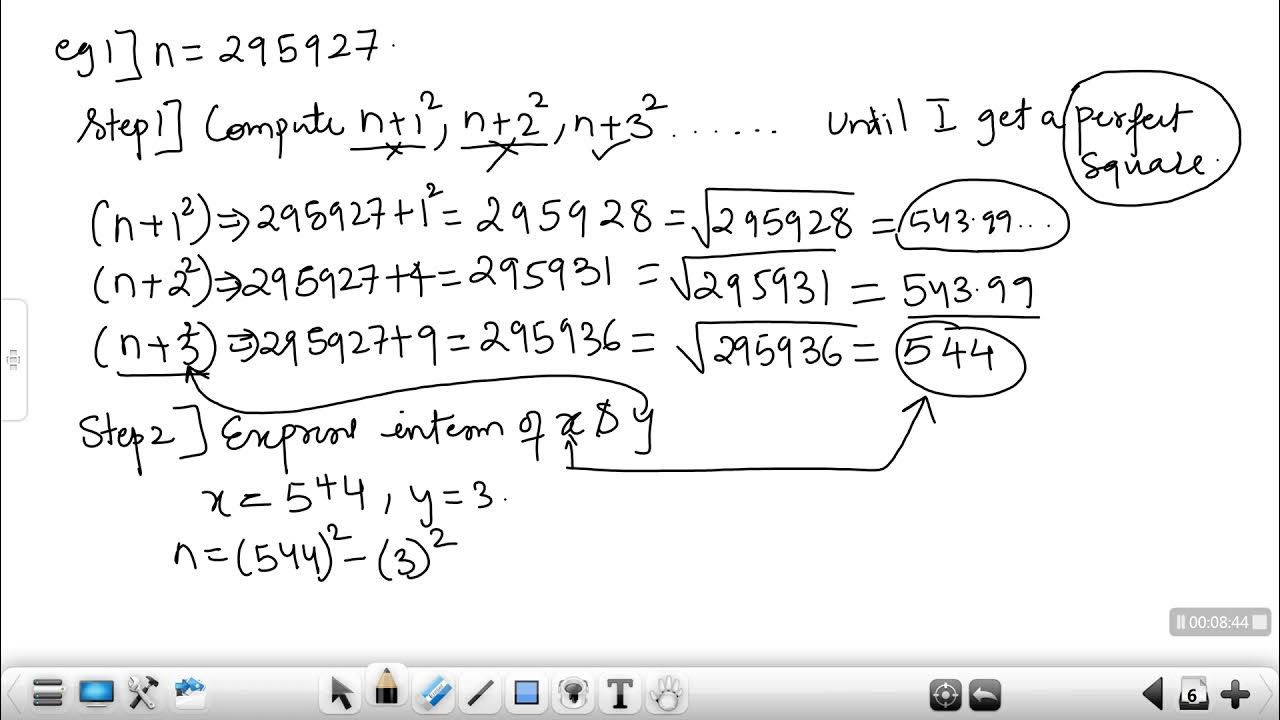 eg 1] n = 295927.
Step 1] Compute n+1², n+2², n+3² ...... Until I get a perfect square.
(n+1²) ⇒ 295927+1² = 295928 = √295928 = 543.99...
(n+2²) ⇒ 295927+4 = 295931 = √295931 = 543.99
(n+3²) ⇒ 295927+9 = 295936 = √295936 = 544
Step 2] interm of x & y
x = 544, y = 3.
n = (544)² - (3)²
00:08:44
T
6